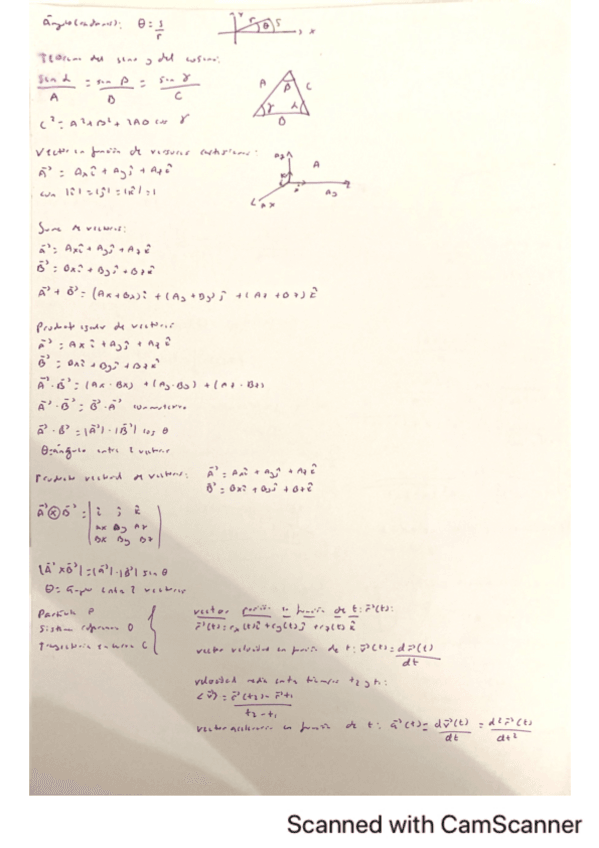 Ángulo (radianes): θ = s/r
Teorema del seno y del coseno:
sen α / A = sen β / B = sen γ / C
C² = A² + B² + 2AB cos γ
Vector en función de versores cartesianos:
A⃗ = Ax î + Ay ĵ + Az k̂
con |î| = |ĵ| = |k̂| = 1
Suma de vectores:
A⃗ = Ax î + Ay ĵ + Az k̂
B⃗ = Bx î + By ĵ + Bz k̂
A⃗ + B⃗ = (Ax + Bx) î + (Ay + By) ĵ + (Az + Bz) k̂
Producto escalar de vectores:
A⃗ = Ax î + Ay ĵ + Az k̂
B⃗ = Bx î + By ĵ + Bz k̂
A⃗ · B⃗ = (Ax · Bx) + (Ay · By) + (Az · Bz)
A⃗ · B⃗ = B⃗ · A⃗ conmutativo
A⃗ · B⃗ = |A⃗| · |B⃗| cos θ
θ: ángulo entre 2 vectores
Producto vectorial de vectores: A⃗ = Ax î + Ay ĵ + Az k̂
B⃗ = Bx î + By ĵ + Bz k̂
A⃗ ⊗ B⃗ = | î ĵ k̂
Ax Ay Az
Bx By Bz |
|A⃗ × B⃗| = |A⃗| · |B⃗| sin θ
θ = ángulo entre 2 vectores
Partícula P
Sistema referencia O
Trayectoria curva C
vector posición en función de t: r⃗(t):
r⃗(t) = rx(t) î + ry(t) ĵ + rz(t) k̂
vector velocidad en función de t: v⃗(t) = d r⃗(t) / dt
velocidad media entre tiempos t2 y t1:
<v⃗> = r⃗(t2) - r⃗t1 / t2 - t1
vector aceleración en función de t: a⃗(t) = d v⃗(t) / dt = d² r⃗(t) / dt²
Scanned with CamScanner